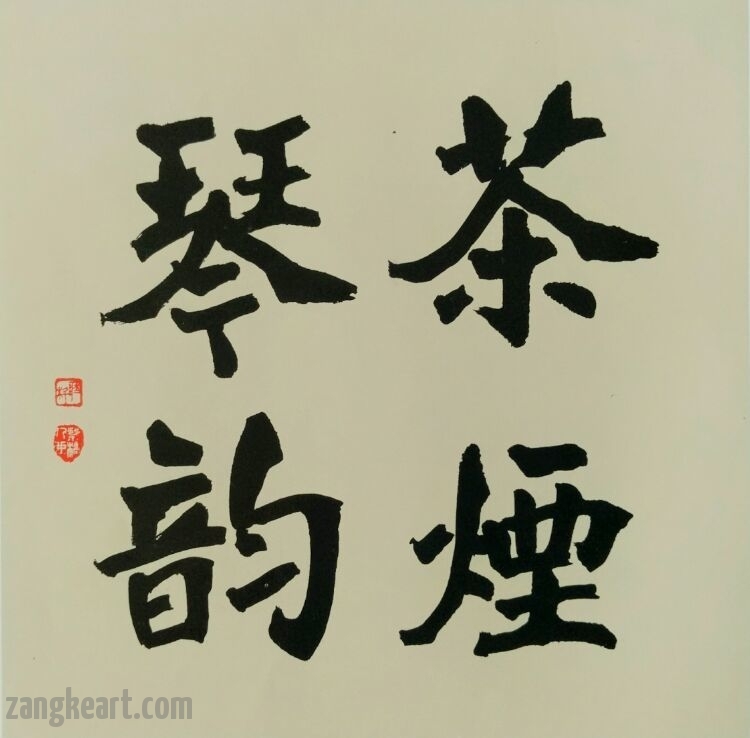 茶煙
琴韵
zangkeart.com